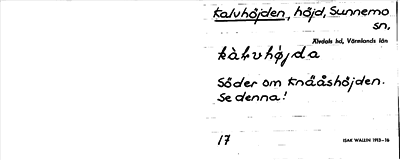 Kalvhöjden, höjd, Sunnemo
sn,
Älvdals hd, Värmlands län
kàlvhø̀jda
Söder om Knååshöjden.
Se denna!
17
ISAK WALLIN 1913-16